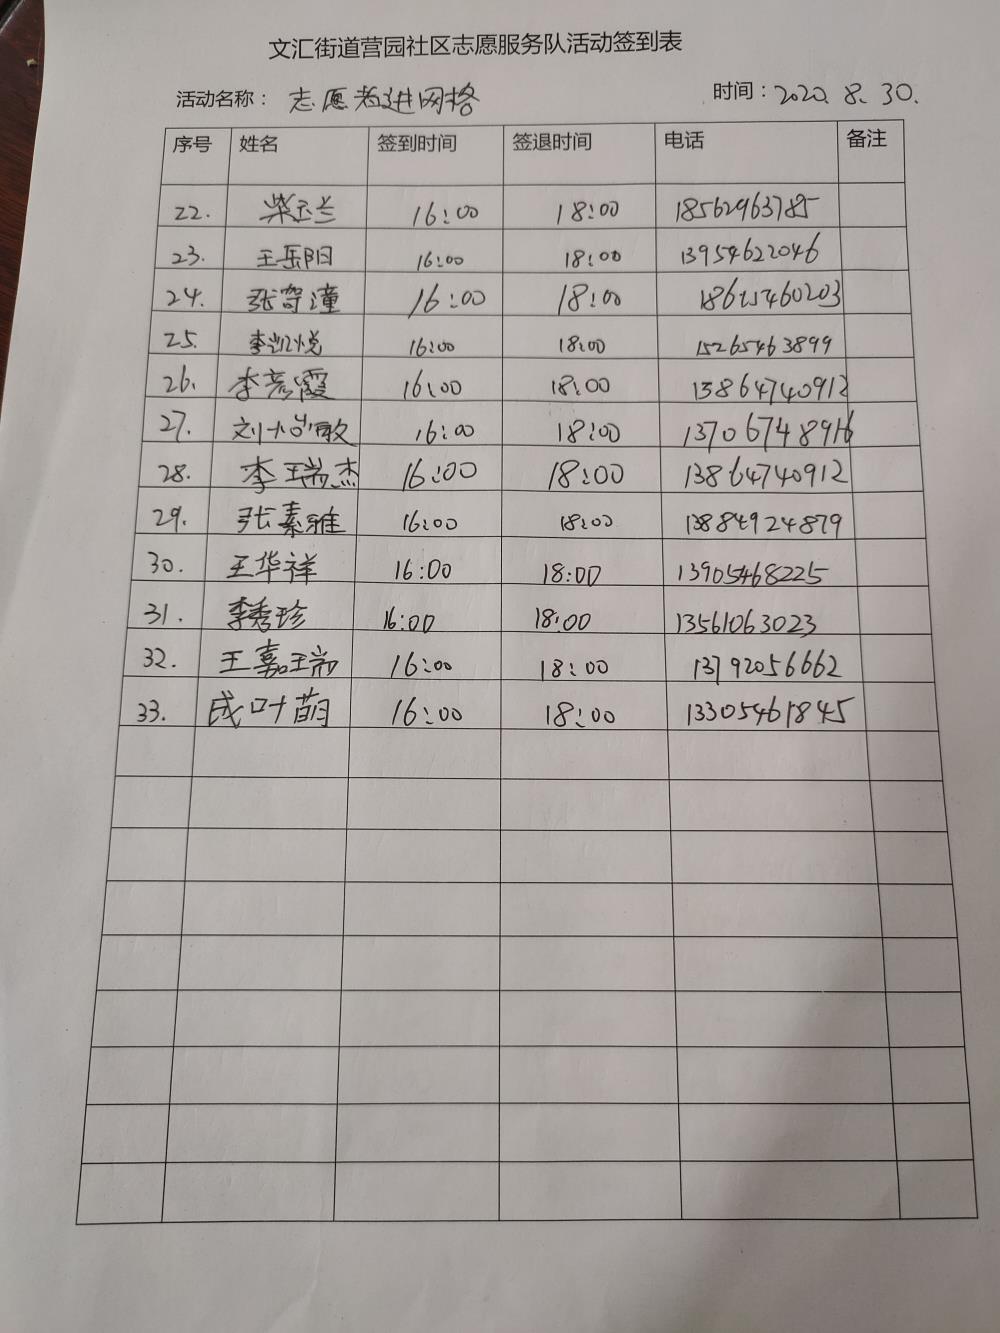 文汇街道营园社区志愿服务队活动签到表
活动名称： 志愿者进网格 时间：2020.8.30.
序号 姓名 签到时间 签退时间 电话 备注
22. 柴玉兰 16:00 18:00 18562963785
23. 王岳阳 16:00 18:00 13954622046
24. 张奇潼 16:00 18:00
25. 李凯悦 16:00 18:00 15265463899
26. 李彦霞 16:00 18:00 13864740912
27. 刘 敏 16:00 18:00 13706748916
28. 李瑞杰 16:00 18:00 13864740912
29. 张素雅 16:00 18:00 13884924879
30. 王华祥 16:00 18:00 13905468225
31. 李秀珍 16:00 18:00 13561063023
32. 王嘉瑞 16:00 18:00 13792056662
33. 成叶萌 16:00 18:00 13305461845